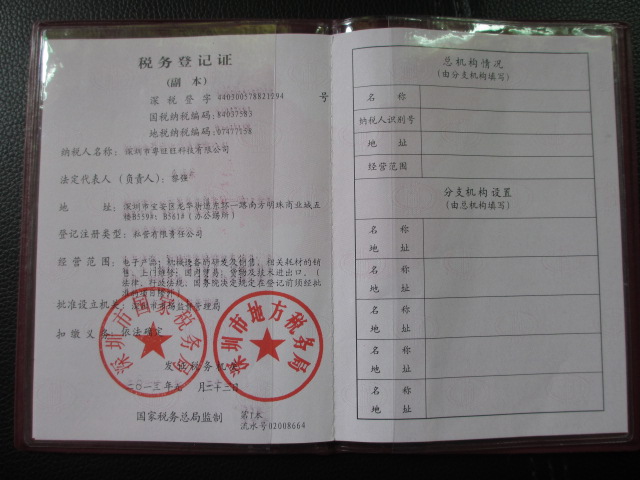 税务登记证
(副 本)
深 税 登 字 440300578821594 号
国税纳税编码: 84037583
地税纳税编码: 07477758
纳税人名称: 深圳市 旺科技有限公司
法定代表人(负责人)
地 址: 深圳市宝安区龙华街道东环一路南方明珠商业城五
楼B559#; B561#(办公场所)
登记注册类型: 私营有限责任公司
经 营 范 围: 电子产品; 机械设备的研发及销售, 相关耗材的销
售, 上门维修; 国内贸易; 货物及技术进出口。(
法律、行政法规、国务院决定规定在登记前须经批
准的项目除外)
批准设立机关: 深圳市市场监督管理局
扣 缴 义 务: 依法确定
发证税务机关
二〇一三年 月二十三日
国家税务总局监制
流水号02008664
深圳市国家税务局
深圳市地方税务局
总机构情况
(由分支机构填写)
名 称
纳税人识别号
地 址
经营范围
分支机构设置
(由总机构填写)
名 称
地 址
名 称
地 址
名 称
地 址
名 称
地 址
名 称
地 址